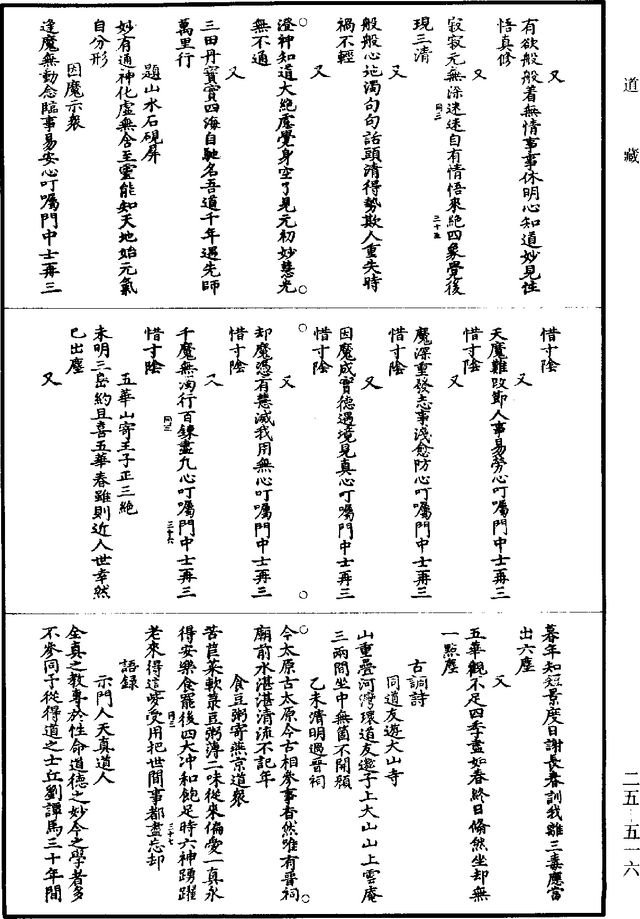 道藏
又
有欲般般着無情事事休明心知道妙見性
悟真修
又
寂寂元無染迷迷自有情悟來絕四象覺後
現三清
又
般般心地濁句句話頭清得勢欺人重失時
禍不輕
又
澄神知道大絕慮覺身空了見元初妙慧光
無不通
又
三田丹寶實四海自馳名吾道千年遇先師
萬里行
題山水石硯屏
妙有通神化虛無含至靈能知天地始元氣
自分形
因魔示衆
逢魔無動念臨事易安心叮囑門中士再三
惜寸陰
又
天魔難改節人事易勞心叮囑門中士再三
惜寸陰
又
魔深重發志事淺愈防心叮囑門中士再三
惜寸陰
又
因魔成寶德遇境見真心叮囑門中士再三
惜寸陰
又
却魔憑有慧滅我用無心叮囑門中士再三
惜寸陰
又
千魔無洶行百鍊盡凡心叮囑門中士再三
惜寸陰
五華山寄王子正三絕
未明三島約且喜五華春雖則近人世幸然
已出塵
又
暮年知短景度日謝長春訓我離三毒應當
出六塵
又
五華觀不足四季盡如春終日翛然坐却無
一點塵
古調詩
同道友遊大山寺
山重疊河灣環道友邀予上大山山上雲庵
三兩間坐中無箇不開顏
乙未清明過晉祠
今太原古太原今古相參事杳然唯有晉祠
廟前水湛湛清流不記年
食豆粥寄燕京道衆
苦苣菜軟裴豆粥薄二味從來偏愛一真永
得安樂食罷後四大冲和飽足時六神踴躍
老來得這受用把世間事都盡忘却
語錄
示門人天真道人
全真之教專於性命道德之妙今之學者多
不參同予從得道之士丘劉譚馬三十年間
二五—五一六